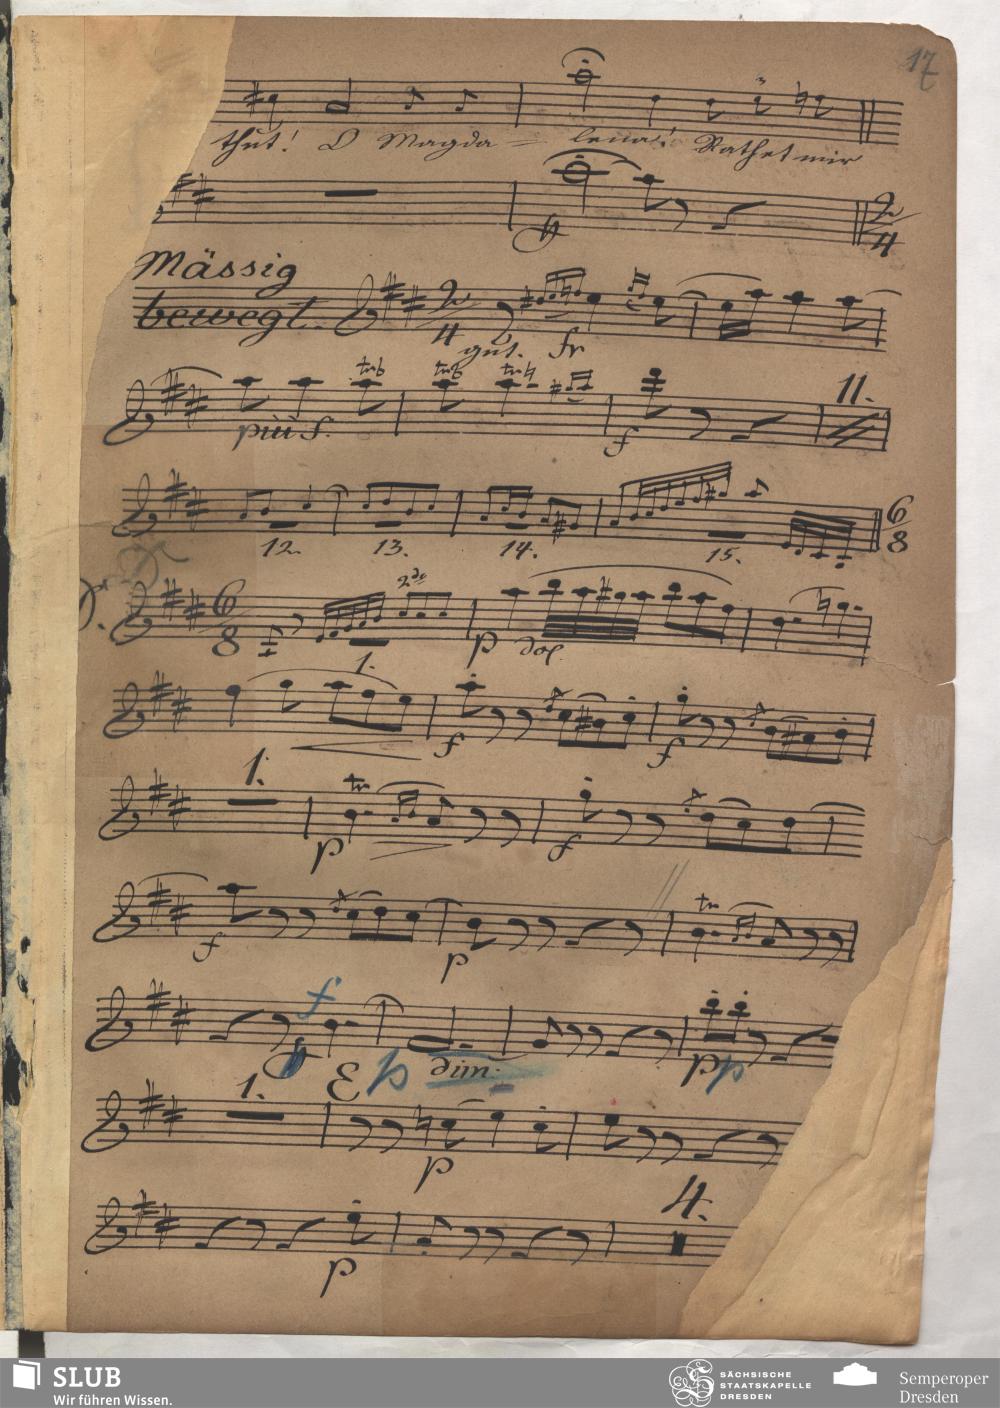 17
thut! O Magda - lena! Rathet mir
2/4
Mässig
bewegt.
2/4
gut. fr
più f.
tr♭ tr♭ tr♮
f
11.
12. 13. 14. 15.
6/8
6/8
2do
1.
p dol.
f f
1.
tr
p f
f p tr
f
E p dim. pp
1.
p
4.
p
SLUB
Wir führen Wissen.
SÄCHSISCHE
STAATSKAPELLE
DRESDEN
Semperoper
Dresden